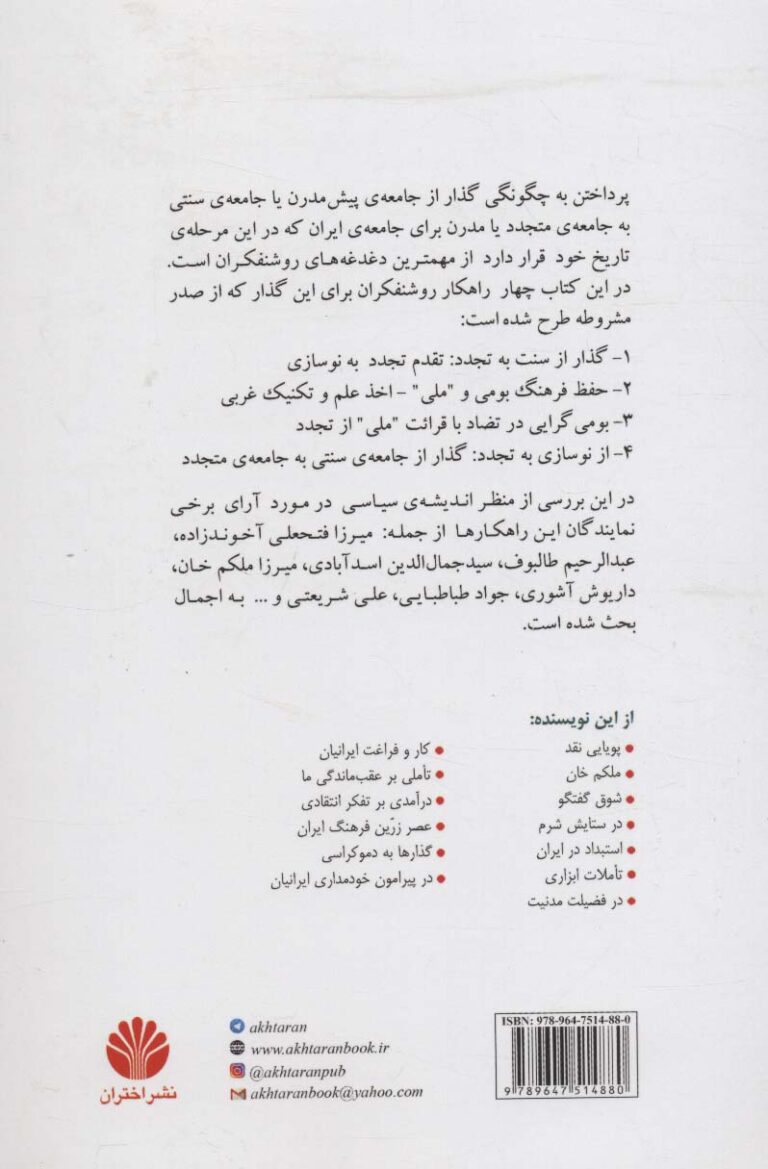 پرداختن به چگونگی گذار از جامعه‌ی پیش‌مدرن یا جامعه‌ی سنتی
به جامعه‌ی متجدد یا مدرن برای جامعه‌ی ایران که در این مرحله‌ی
تاریخ خود قرار دارد از مهمترین دغدغه‌های روشنفکران است.
در این کتاب چهار راهکار روشنفکران برای این گذار که از صدر
مشروطه طرح شده است:
۱- گذار از سنت به تجدد: تقدم تجدد به نوسازی
۲- حفظ فرهنگ بومی و "ملی" - اخذ علم و تکنیک غربی
۳- بومی‌گرایی در تضاد با قرائت "ملی" از تجدد
۴- از نوسازی به تجدد: گذار از جامعه‌ی سنتی به جامعه‌ی متجدد
در این بررسی از منظر اندیشه‌ی سیاسی در مورد آرای برخی
نمایندگان این راهکارها از جمله: میرزا فتحعلی آخوندزاده،
عبدالرحیم طالبوف، سیدجمال‌الدین اسدآبادی، میرزا ملکم خان،
داریوش آشوری، جواد طباطبایی، علی شریعتی و ... به اجمال
بحث شده است.
از این نویسنده:
● پویایی نقد
● ملکم خان
● شوق گفتگو
● در ستایش شرم
● استبداد در ایران
● تأملات ابزاری
● در فضیلت مدنیت
● کار و فراغت ایرانیان
● تأملی بر عقب‌ماندگی ما
● درآمدی بر تفکر انتقادی
● عصر زرّین فرهنگ ایران
● گذارها به دموکراسی
● در پیرامون خودمداری ایرانیان
نشر اختران
akhtaran
www.akhtaranbook.ir
@akhtaranpub
akhtaranbook@yahoo.com
ISBN: 978-964-7514-88-0
9 789647 514880